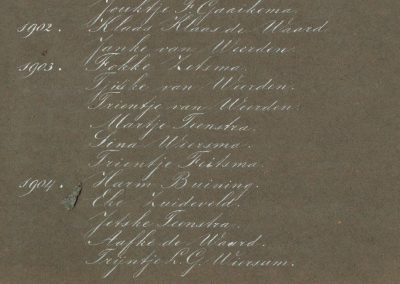 Fouktje F. Gaaikema.
1902. Klaas Klaas de Waard
Janke van Weerden.
1903. Fokke Zetsma.
Tjiske van Weerden.
Trientje van Weerden.
Martje Teenstra.
Lina Wiersma.
Trientje Feitsma.
1904. Harm Buining.
Eke Zuideveld.
Jetske Teenstra.
Aafke de Waard.
Trijntje L. G. Wiersam.